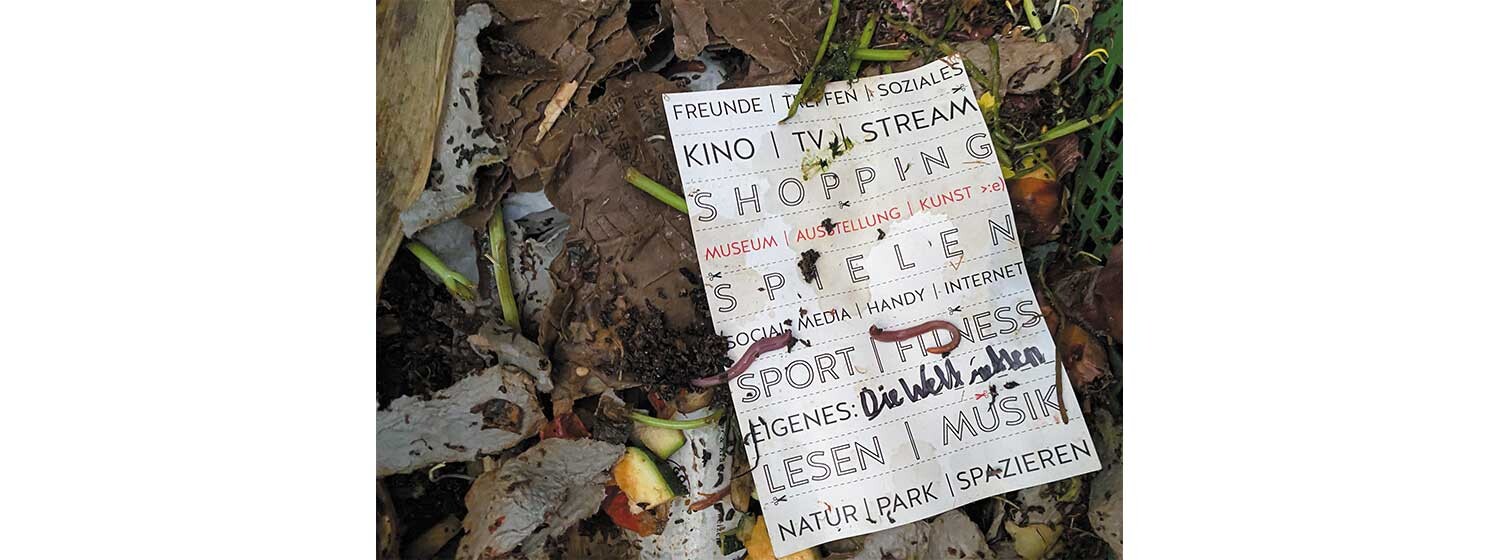 FREUNDE | TREFFEN | SOZIALES
KINO | TV | STREAM
SHOPPING
MUSEUM | AUSSTELLUNG | KUNST >:e)
SPIELEN
SOCIAL MEDIA | HANDY | INTERNET
SPORT | FITNESS
EIGENES: Die Welt retten
LESEN | MUSIK
NATUR | PARK | SPAZIEREN